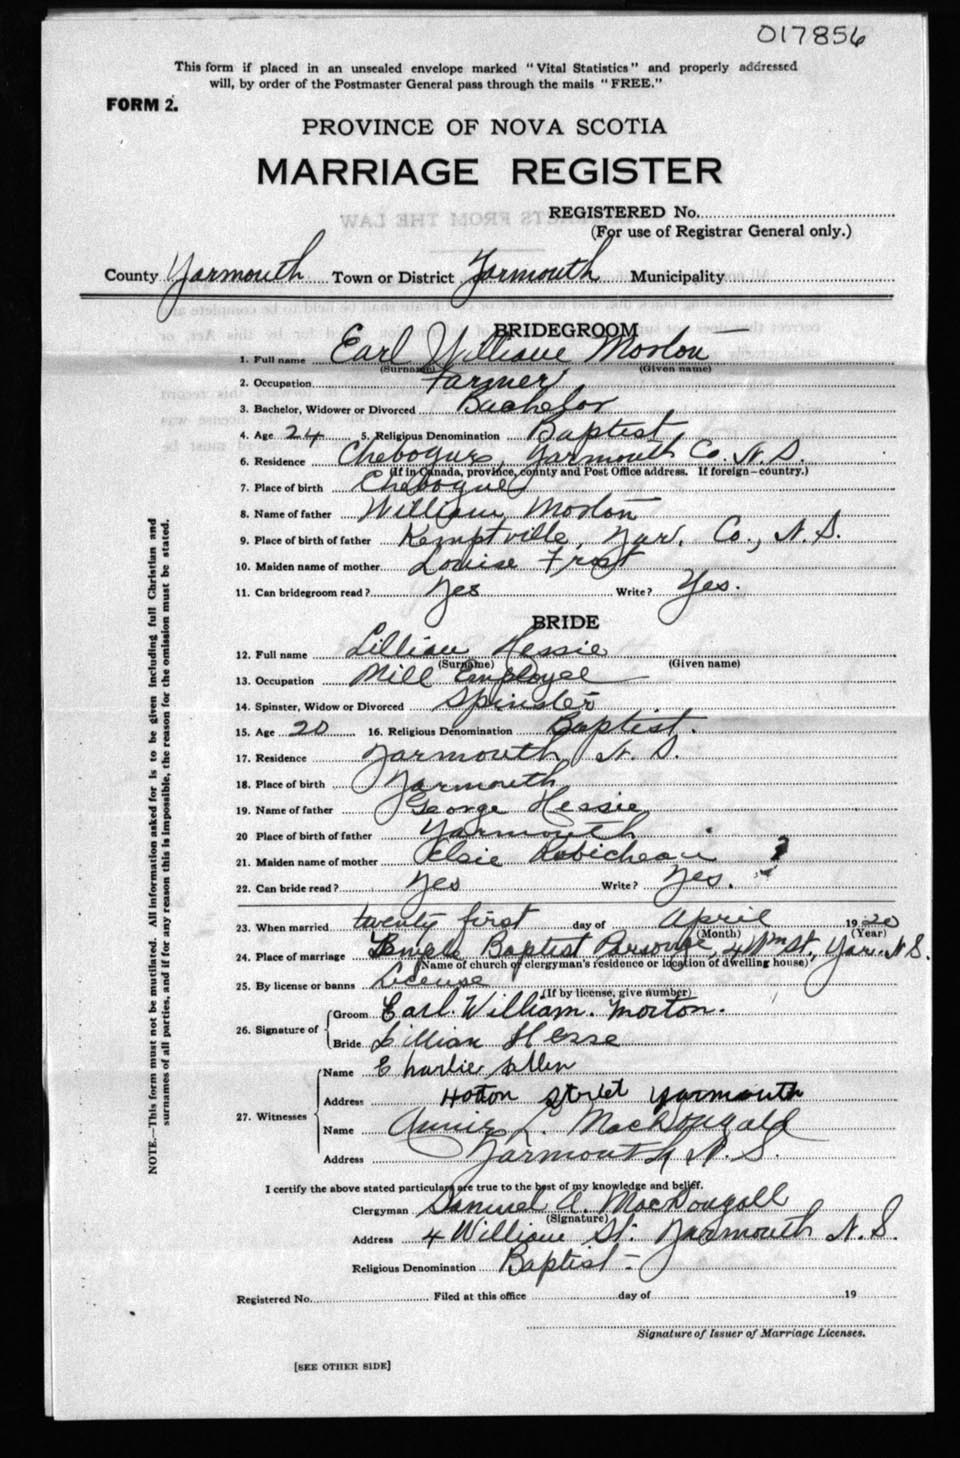 017856
This form if placed in an unsealed envelope marked "Vital Statistics" and properly addressed
will, by order of the Postmaster General pass through the mails "FREE."
FORM 2.
PROVINCE OF NOVA SCOTIA
MARRIAGE REGISTER
REGISTERED No.
(For use of Registrar General only.)
County Yarmouth Town or District Yarmouth Municipality
BRIDEGROOM
1. Full name Earl William Morton
(Surname) (Given name)
2. Occupation Farmer
3. Bachelor, Widower or Divorced Bachelor
4. Age 24 5. Religious Denomination Baptist
6. Residence Chebogue, Yarmouth Co. N.S.
(If in Canada, province, county and Post Office address. If foreign—country.)
7. Place of birth Chebogue
8. Name of father William Morton
9. Place of birth of father Kemptville, Yar. Co., N.S.
10. Maiden name of mother Louise Frost
11. Can bridegroom read? Yes Write? Yes.
BRIDE
12. Full name Lillian Hessie
(Surname) (Given name)
13. Occupation Mill Employee
14. Spinster, Widow or Divorced Spinster
15. Age 20 16. Religious Denomination Baptist.
17. Residence Yarmouth N.S.
18. Place of birth Yarmouth
19. Name of father George Hessie
20 Place of birth of father Yarmouth
21. Maiden name of mother Elsie Robicheau
22. Can bride read? Yes Write? Yes.
23. When married twenty first day of April 1920
(Month) (Year)
24. Place of marriage Temple Baptist Parsonage, 4 Wm St., Yar. N.S.
(Name of church or clergyman's residence or location of dwelling house)
25. By license or banns License
(If by license, give number)
26. Signature of Groom Earl. William. Morton.
Bride Lillian Hesse
27. Witnesses Name Charlie Allen
Address Hoton Street Yarmouth
Name Annie L. MacDougald
Address Yarmouth N.S.
I certify the above stated particulars are true to the best of my knowledge and belief.
Clergyman Samuel A. MacDougall
(Signature)
Address 4 William St. Yarmouth N.S.
Religious Denomination Baptist -
Registered No. Filed at this office day of 19
Signature of Issuer of Marriage Licenses.
[SEE OTHER SIDE]
NOTE.—This form must not be mutilated. All information asked for is to be given including full Christian and
surnames of all parties, and if for any reason this is impossible, the reason for the omission must be stated.